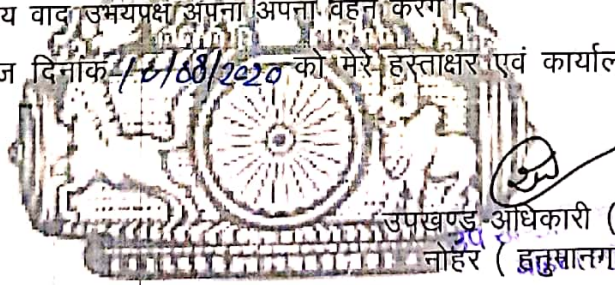 य वाद उभयपक्ष अपना अपना वहन करेंगे।
ज दिनांक 10/08/2020 को मेरे हस्ताक्षर एवं कार्याल
उपखण्ड अधिकारी (
नोहर ( हनुमानग